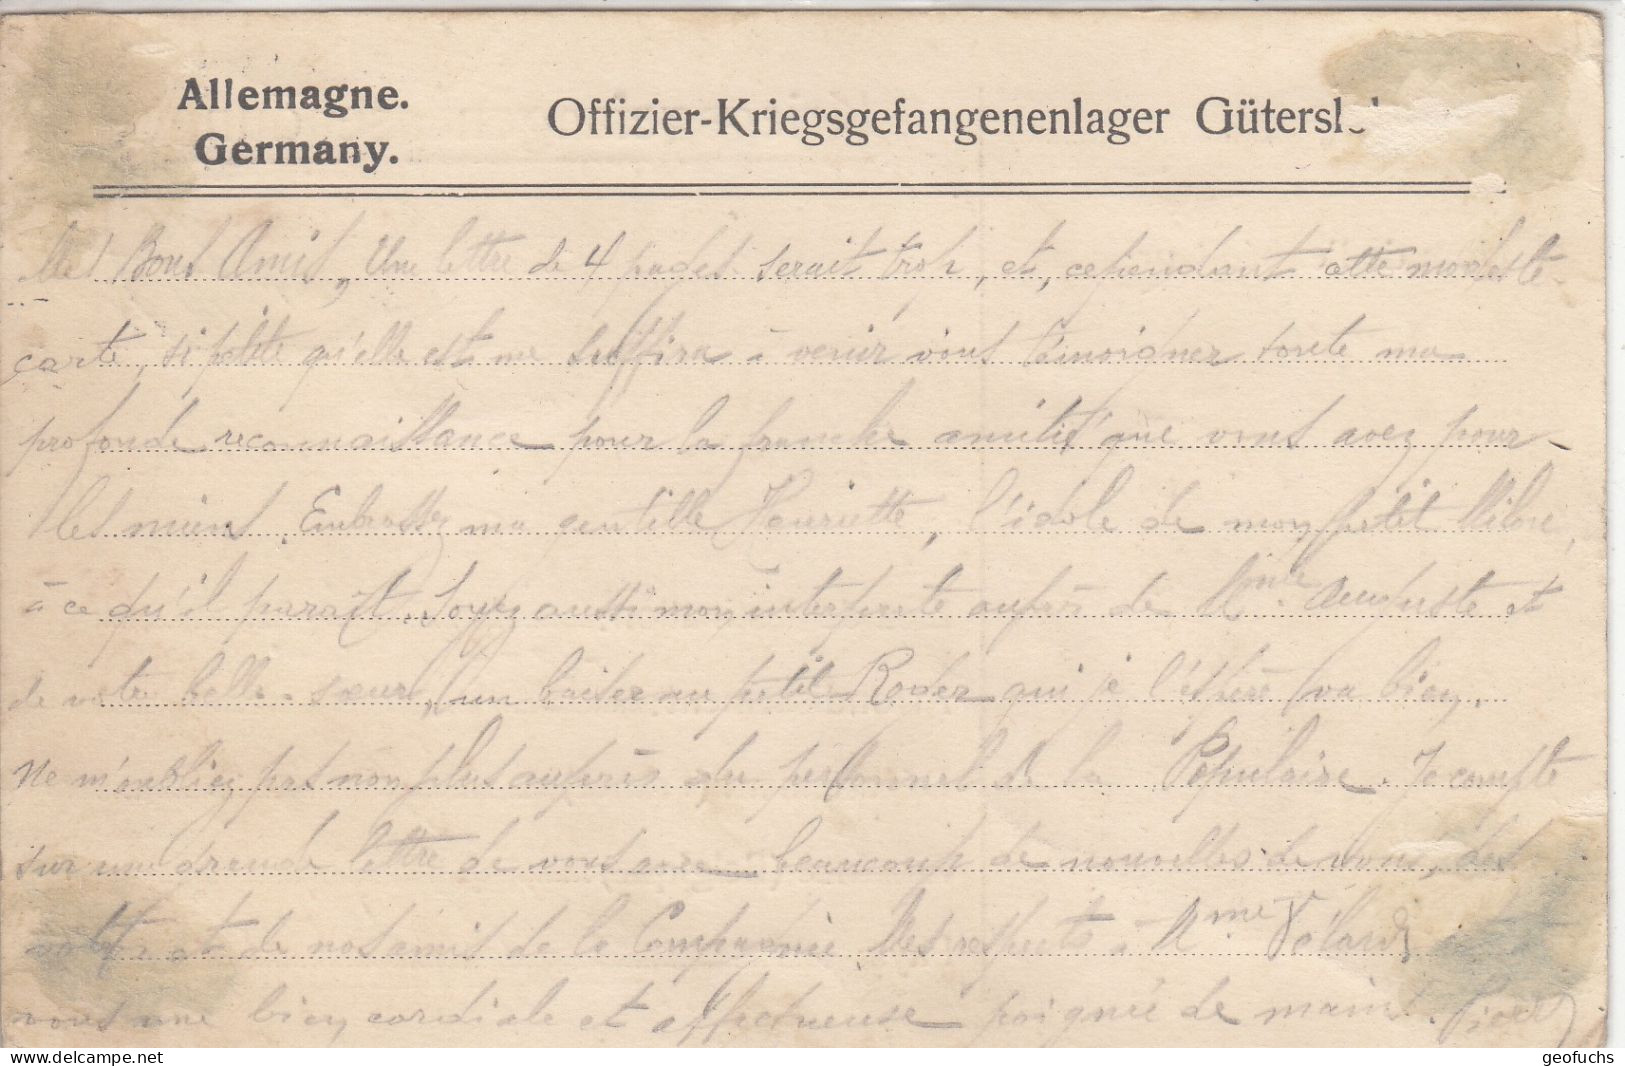 Allemagne.
Germany.
Offizier-Kriegsgefangenenlager Gütersl
Mes Bons Amis, Une lettre de 4 pages serait trop, et, cependant cette modeste
carte, si petite qu'elle est me suffira à venir vous témoigner toute ma
profonde reconnaissance pour la franche amitié que vous avez pour
les miens. Embrassez ma gentille Henriette, l'idole de mon petit
à ce qu'il paraît. Soyez aussi mon interprète auprès de Mme Auguste et
de votre belle-sœur, un baiser au petit Roger qui je l'espère va bien.
Ne m'oubliez pas non plus auprès du personnel de la Populaire. Je compte
sur une grande lettre de vous avec beaucoup de nouvelles de vous, des
et de nos amis de la Compagnie. Mes respects à Mme
vous une bien cordiale et affectueuse poignée de mains.
geofuchs